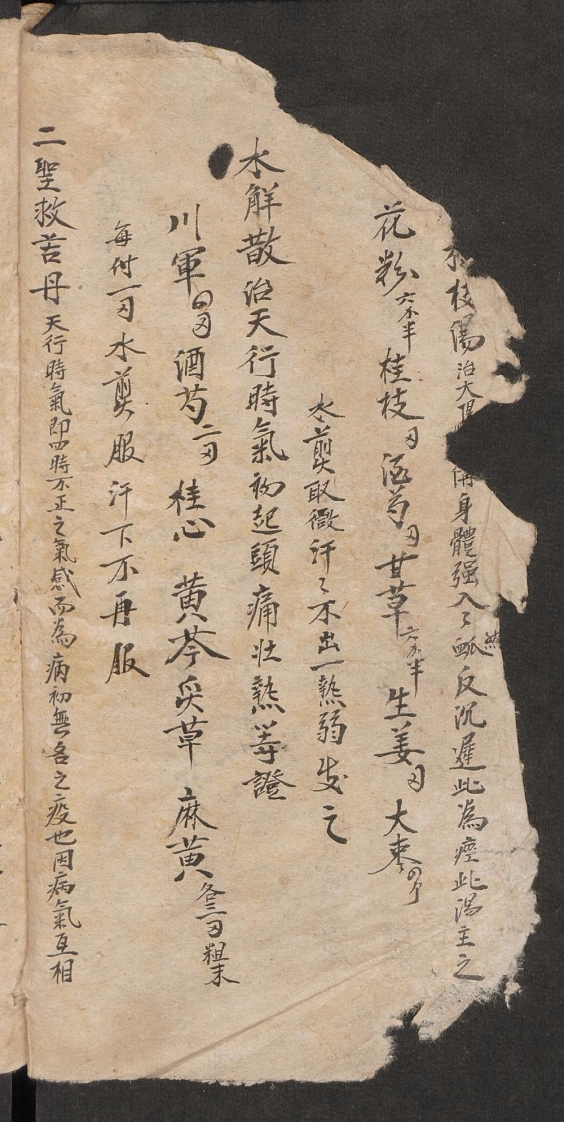 枝湯治太陽 備身體強入〻 然 脉反沉遲此為痙此湯主之
花粉六分半 桂枝 酒芍 甘草六分半 生姜 大枣
水煎取微汗〻不出一熱弱发之
水解散治天行時氣初起頭痛壮熱等證
川軍四 酒芍二 桂心 黃芩 炙草 麻黃各三 粗末
每付一 水煎服汗下不再服
二聖救苦丹 天行時氣即四時不正之氣感而為病初無名之疫也因病氣互相